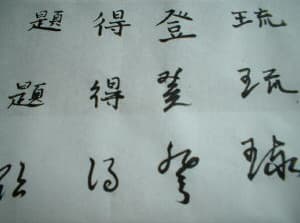 琉琉
登登登
得得得
題題